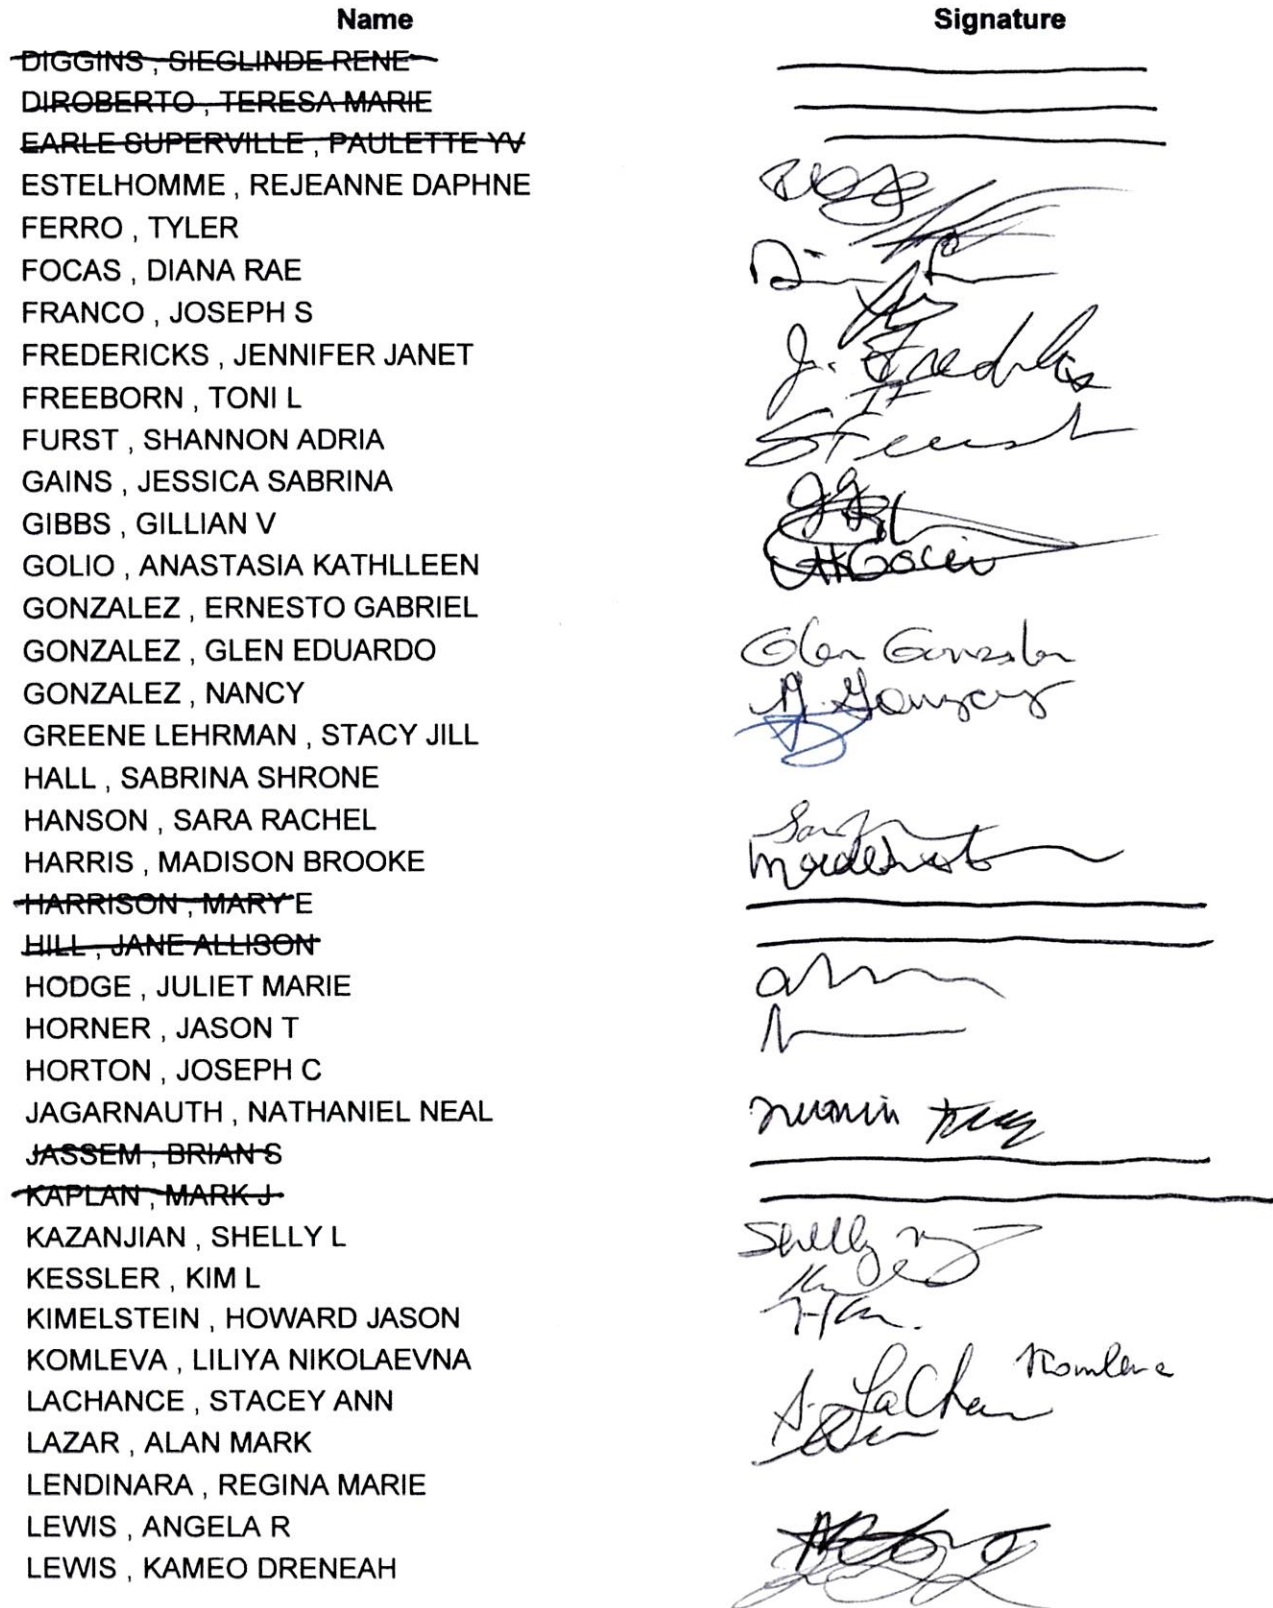 Name Signature
DIGGINS , SIEGLINDE RENE
DIROBERTO , TERESA MARIE
EARLE SUPERVILLE , PAULETTE YV
ESTELHOMME , REJEANNE DAPHNE
FERRO , TYLER
FOCAS , DIANA RAE
FRANCO , JOSEPH S
FREDERICKS , JENNIFER JANET J.
FREEBORN , TONI L TF
FURST , SHANNON ADRIA
GAINS , JESSICA SABRINA
GIBBS , GILLIAN V
GOLIO , ANASTASIA KATHLLEEN
GONZALEZ , ERNESTO GABRIEL
GONZALEZ , GLEN EDUARDO Glen
GONZALEZ , NANCY N.
GREENE LEHRMAN , STACY JILL
HALL , SABRINA SHRONE
HANSON , SARA RACHEL
HARRIS , MADISON BROOKE
HARRISON , MARY E
HILL , JANE ALLISON
HODGE , JULIET MARIE
HORNER , JASON T
HORTON , JOSEPH C
JAGARNAUTH , NATHANIEL NEAL
JASSEM , BRIAN S
KAPLAN , MARK J
KAZANJIAN , SHELLY L Shelly
KESSLER , KIM L
KIMELSTEIN , HOWARD JASON
KOMLEVA , LILIYA NIKOLAEVNA Komleva
LACHANCE , STACEY ANN S. LaChan
LAZAR , ALAN MARK
LENDINARA , REGINA MARIE
LEWIS , ANGELA R
LEWIS , KAMEO DRENEAH